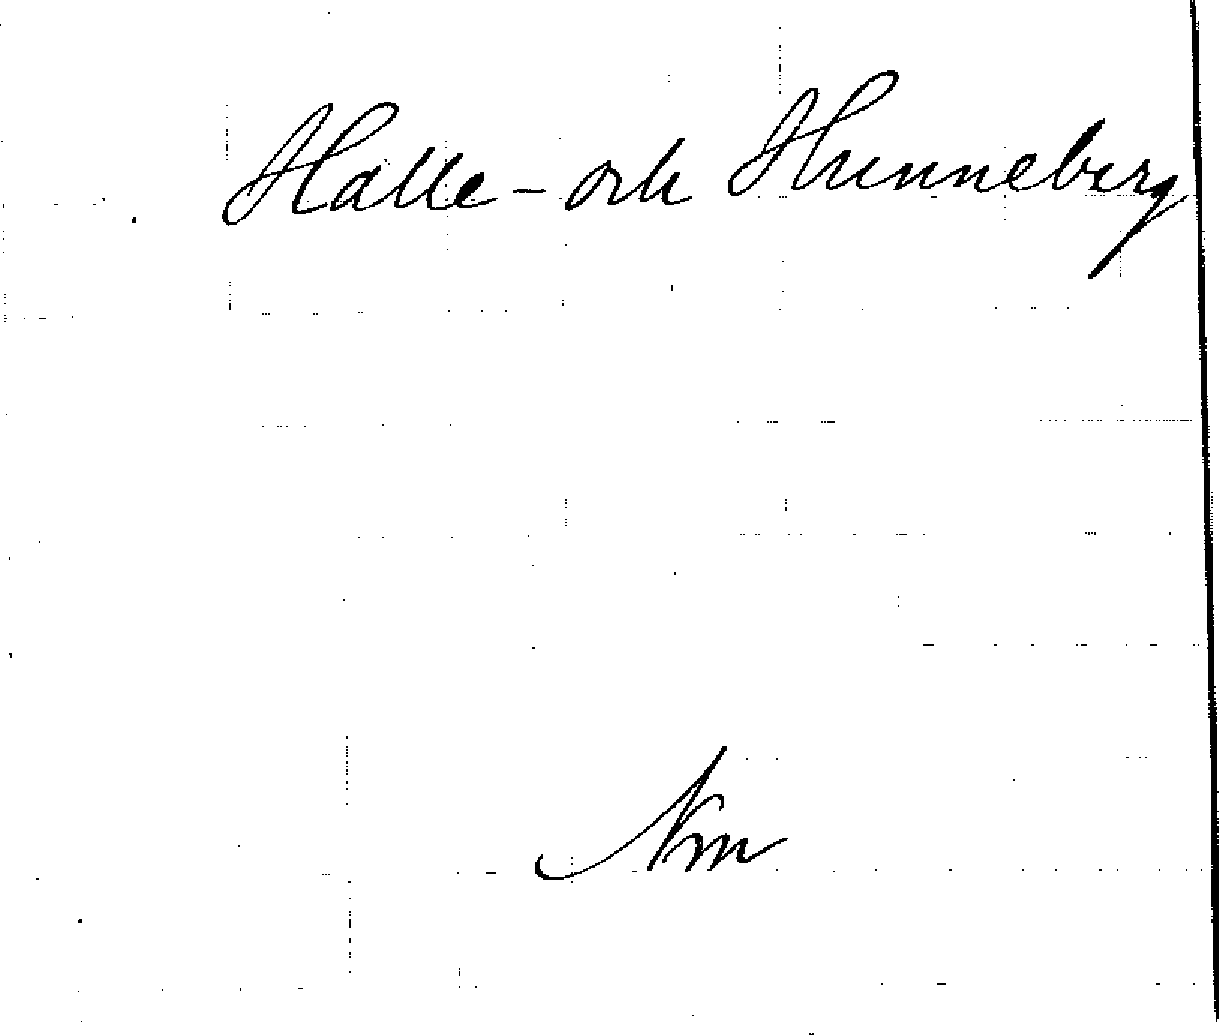 Halle- och Hunneberg
Nm